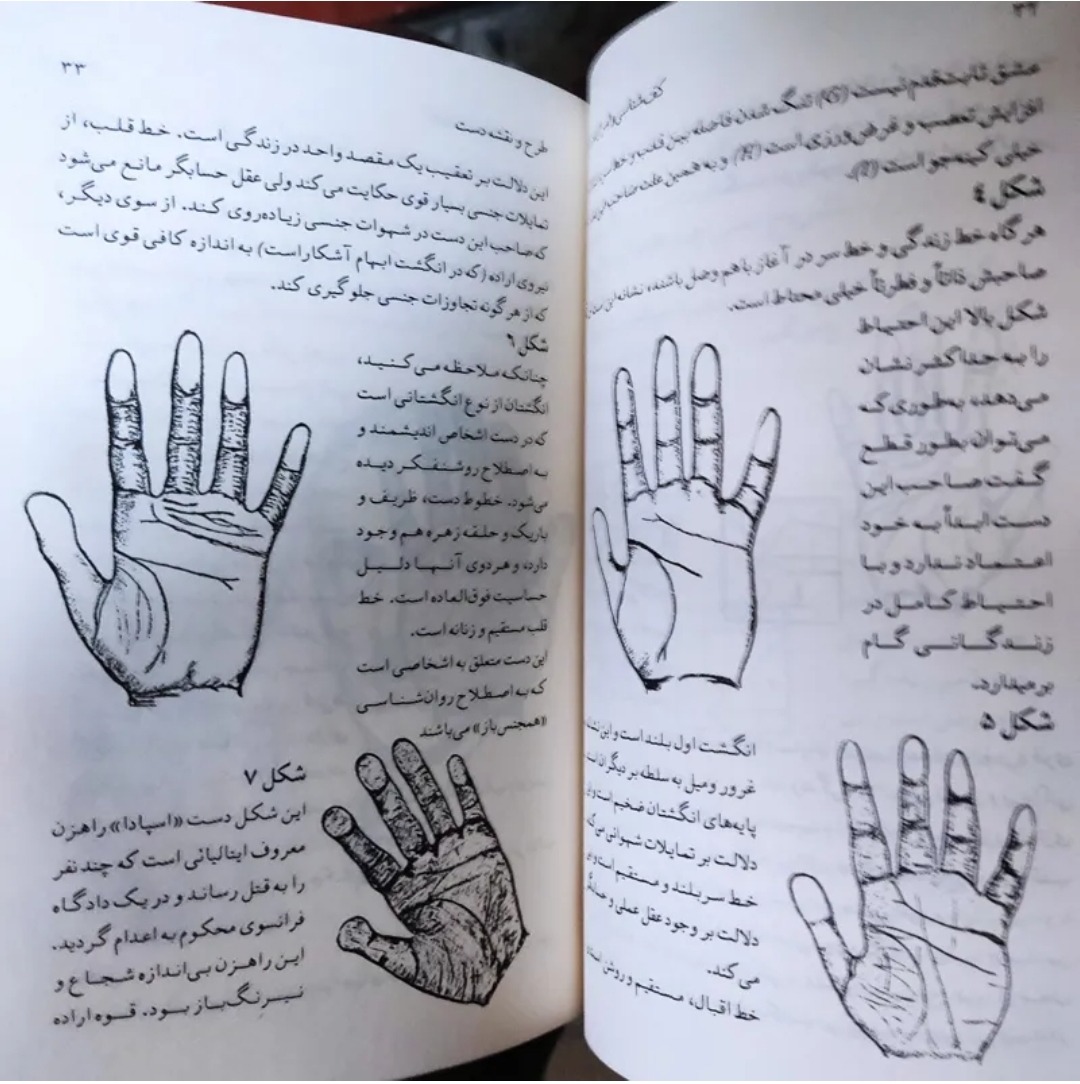 ۳۲
کف‌شناسی
عشق ثابت‌قدم نیست (G) تنگ شدن فاصله بین قلب و خط سر
افزایش تعصب و غرض‌ورزی است (H) و به همین علت صاحب این
خیلی کینه‌جو است (I).
شکل ٤
هرگاه خط زندگی و خط سر در آغاز با هم وصل باشند، نشانه این است
صاحبش ذاتاً و فطرتاً خیلی محتاط است.
شکل بالا این احتیاط
را به حداکثر نشان
می‌دهد، به‌طوری که
می‌توان بطور قطع
گفت صاحب این
دست ابداً به خود
اعتماد ندارد و با
احتیاط کامل در
زندگانی گام
برمیدارد.
شکل ۵
انگشت اول بلند است و این
غرور و میل به سلطه بر دیگران است
پایه‌های انگشتان ضخیم است و
دلالت بر تمایلات شهوانی می‌کند
خط سر بلند و مستقیم است و
دلالت بر وجود عقل عملی و
می‌کند.
خط اقبال، مستقیم و روشن است
۳۳
طرح و نقشه دست
این دلالت بر تعقیب یک مقصد واحد در زندگی است. خط قلب، از
تمایلات جنسی بسیار قوی حکایت می‌کند ولی عقل حسابگر مانع می‌شود
که صاحب این دست در شهوات جنسی زیاده‌روی کند. از سوی دیگر،
نیروی اراده (که در انگشت ابهام آشکار است) به اندازه کافی قوی است
که از هرگونه تجاوزات جنسی جلوگیری کند.
شکل ٦
چنانکه ملاحظه می‌کنید،
انگشتان از نوع انگشتانی است
که در دست اشخاص اندیشمند و
به اصطلاح روشنفکر دیده
می‌شود. خطوط دست، ظریف و
باریک و حلقه زهره هم وجود
دارد، و هر دوی آنها دلیل
حساسیت فوق‌العاده است. خط
قلب مستقیم و زنانه است.
این دست متعلق به اشخاصی است
که به اصطلاح روان‌شناسی
«همجنس‌باز» می‌باشند
شکل ۷
این شکل دست «اسپادا» راهزن
معروف ایتالیائی است که چند نفر
را به قتل رساند و در یک دادگاه
فرانسوی محکوم به اعدام گردید.
این راهزن بی‌اندازه شجاع و
نیرنگ‌باز بود. قوه اراده